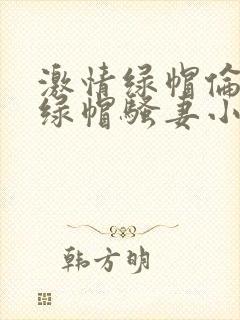 激情绿帽倫
绿帽騷妻小
韩方明